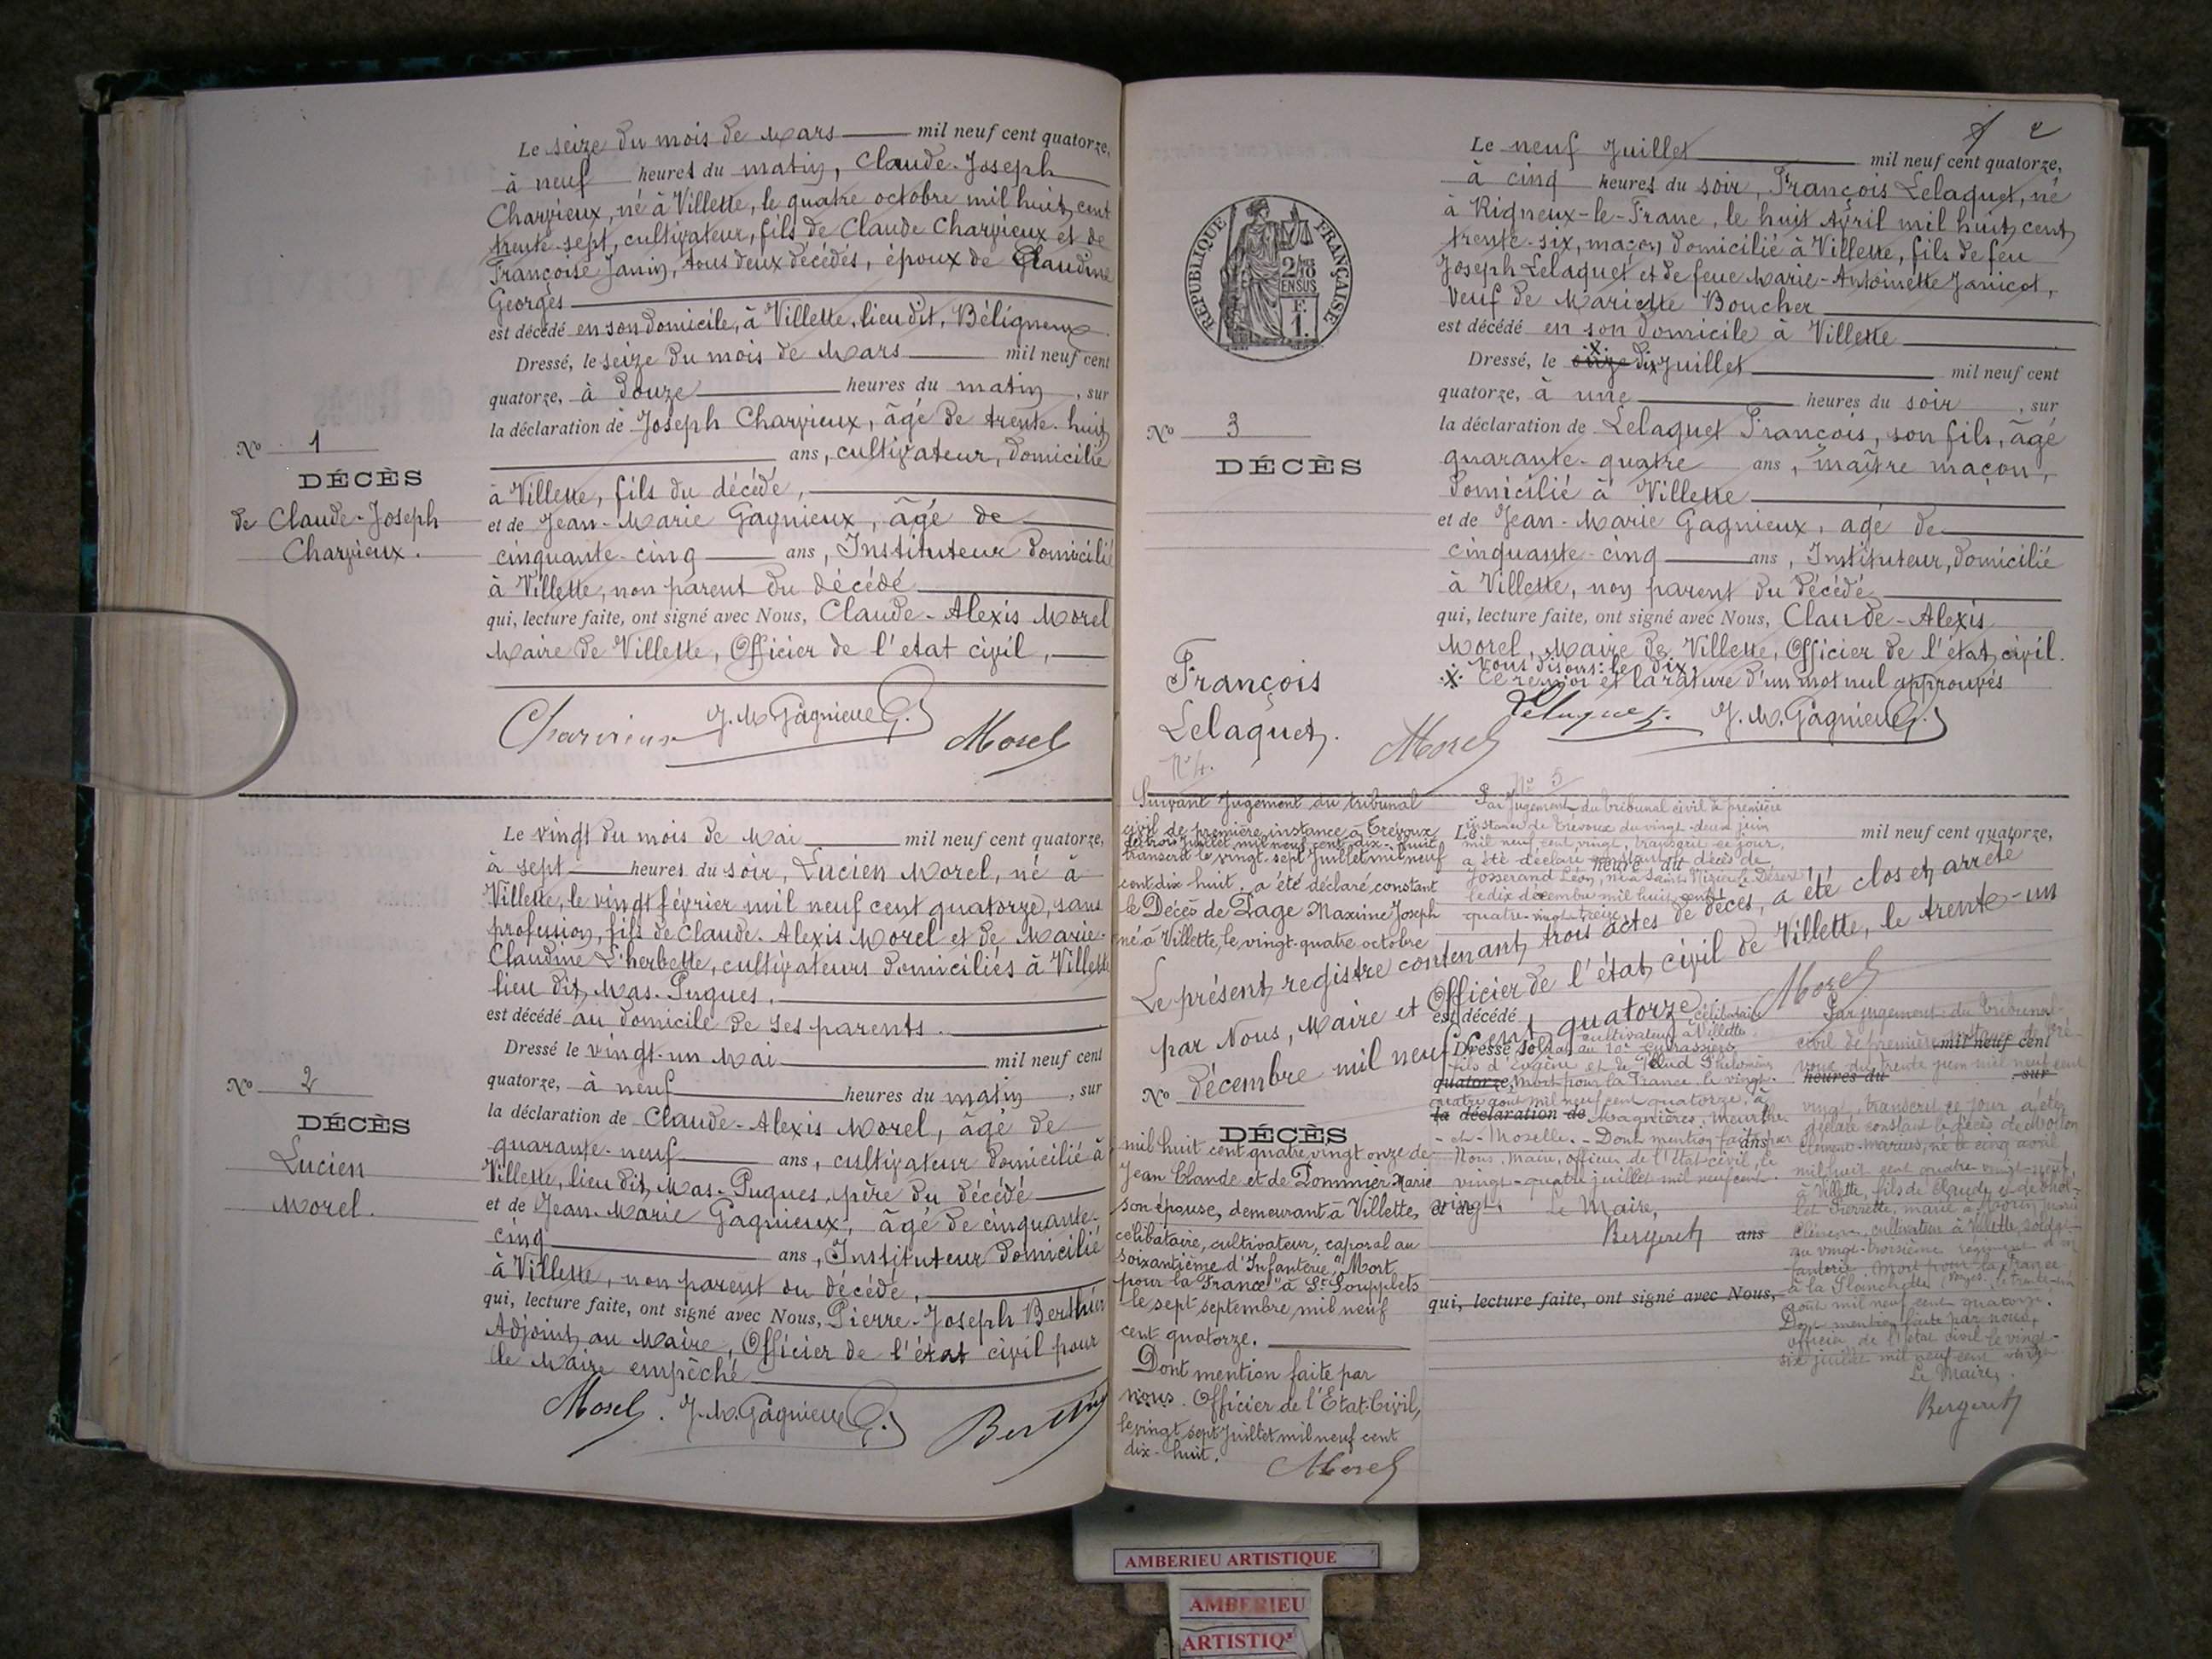 Le seize du mois de Mars mil neuf cent quatorze,
à neuf heures du matin, Claude-Joseph
Charvieux, né à Villette, le quatre octobre mil huit cent
trente-sept, cultivateur, fils de Claude Charvieux et de
Françoise Janin, tous deux décédés, époux de Claudine
Georges
est décédé en son domicile, à Villette, lieu dit, Béligneux
Dressé, le seize du mois de Mars mil neuf cent
quatorze, à douze heures du matin, sur
la déclaration de Joseph Charvieux, âgé de trente-huit
ans, cultivateur, domicilié
à Villette, fils du décédé,
et de Jean-Marie Gagnieux, âgé de
cinquante-cinq ans, Instituteur domicilié
à Villette, non parent du décédé
qui, lecture faite, ont signé avec Nous, Claude-Alexis Morel
Maire de Villette, Officier de l'etat civil,
Charvieux J. M. Gagnieux Morel
No 1
DÉCÈS
de Claude-Joseph
Charvieux.
Le vingt du mois de Mai mil neuf cent quatorze,
à sept heures du soir, Lucien Morel, né à
Villette, le vingt février mil neuf cent quatorze, sans
profession, fils de Claude-Alexis Morel et de Marie-
Claudine L'herbette, cultivateurs domiciliés à Villette
lieu dit, Mas-Pugues.
est décédé au domicile de ses parents.
Dressé le vingt-un Mai mil neuf cent
quatorze, à neuf heures du matin, sur
la déclaration de Claude-Alexis Morel, âgé de
quarante-neuf ans, cultivateur domicilié à
Villette, lieu dit, Mas-Pugues, père du décédé
et de Jean-Marie Gagnieux, âgé de cinquante-
cinq ans, Instituteur domicilié
à Villette, non parent du décédé,
qui, lecture faite, ont signé avec Nous, Pierre-Joseph Berthier
Adjoint au Maire, Officier de l'état civil pour
le Maire empêché
Morel. J. M. Gagnieux Berthier
No 2
DÉCÈS
Lucien
Morel.
2
RÉPUBLIQUE FRANÇAISE
2/10 EN SUS
F.
1.
Le neuf Juillet mil neuf cent quatorze,
à cinq heures du soir, François Lelaquet, né
à Rigneux-le-Franc, le huit Avril mil huit cent
trente-six, maçon domicilié à Villette, fils de feu
Joseph Lelaquet et de feue Marie-Antoinette Janicot,
veuf de Mariette Boucher
est décédé en son domicile à Villette
Dressé, le dix Juillet mil neuf cent
quatorze, à une heures du soir, sur
la déclaration de Lelaquet François, son fils, âgé
quarante-quatre ans, maître maçon,
domicilié à Villette
et de Jean-Marie Gagnieux, agé de
cinquante-cinq ans, Instituteur, domicilié
à Villette, non parent du décédé
qui, lecture faite, ont signé avec Nous, Claude-Alexis
Morel, Maire de Villette, Officier de l'état civil.
nous disons: le dix.
X Ce renvoi et la rature d'un mot nul approuvés
Lelaquet. J. M. Gagnieux
Morel
No 3
DÉCÈS
François
Lelaquet.
No 4.
Suivant Jugement du tribunal
civil de première instance à Trévoux
du trois Juillet mil neuf cent dix-huit
transcrit le vingt-sept Juillet mil neuf
cent dix huit, a été déclaré constant
le Décès de Page Maxime Joseph
né à Villette, le vingt-quatre octobre
mil huit cent quatre vingt onze de
Jean Claude et de Pommier Marie
son épouse, demeurant à Villette,
célibataire, cultivateur, caporal au
soixantième d'Infanterie, "Mort
pour la France" à St Soupplets
le sept septembre mil neuf
cent quatorze.
Dont mention faite par
nous. Officier de l'Etat-Civil,
le vingt sept Juillet mil neuf cent
dix-huit.
Morel
Le présent registre contenant trois actes de décès, a été clos et arrêté
par Nous, Maire et Officier de l'état civil de Villette, le trente-un
décembre mil neuf cent quatorze Morel
No
DÉCÈS
No 5
Par Jugement du tribunal civil de première
instance de Trévoux du vingt-deux juin
mil neuf cent vingt, transcrit ce jour,
a été déclaré constant le décès de
Josserand Léon, né à Saint Nizier le Désert
le dix décembre mil huit cent
quatre-vingt-treize
célibataire
cultivateur à Villette
soldat au 10e Cuirassiers
fils d'Eugène et de Philomène
Mort pour la France le vingt-
quatre août mil neuf cent quatorze, à
Magnières, Meurthe
-et-Moselle. - Dont mention faite par
Nous, Maire, officier de l'état civil, le
vingt-quatre juillet mil neuf cent
vingt. Le Maire,
Bergeret
Le mil neuf cent quatorze,
heure du
est décédé
Dressé le mil neuf cent
quatorze, heures du sur
la déclaration de
ans
et de
ans
qui, lecture faite, ont signé avec Nous,
Par jugement du tribunal
civil de première instance de Tré-
voux du trente juin mil neuf cent
vingt, transcrit ce jour a été
déclaré constant le décès de
Clément-Marius, né le cinq avril
mil huit cent quatre-vingt-neuf,
à Villette, fils de Claude et de
Pierrette, marié à
cultivateur à Villette, soldat
au vingt-troisième régiment d'in-
fanterie. Mort pour la France
à la Planchette, Vosges, le trente-un
août mil neuf cent quatorze.
Dont mention faite par nous,
officier de l'état civil le vingt-
six juillet mil neuf cent vingt
Le Maire,
Bergeret
AMBERIEU ARTISTIQUE
AMBERIEU
ARTISTIQ